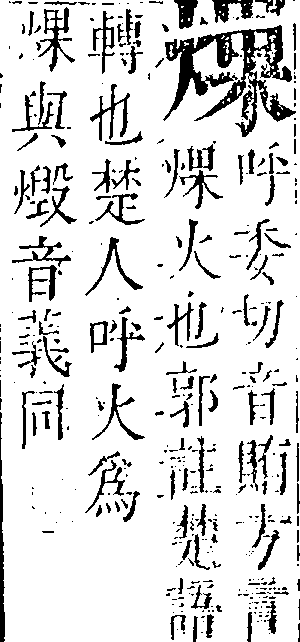 煤呼委切音賄方言
煤火也郭註楚語
轉也楚人呼火為
煤與燬音義同